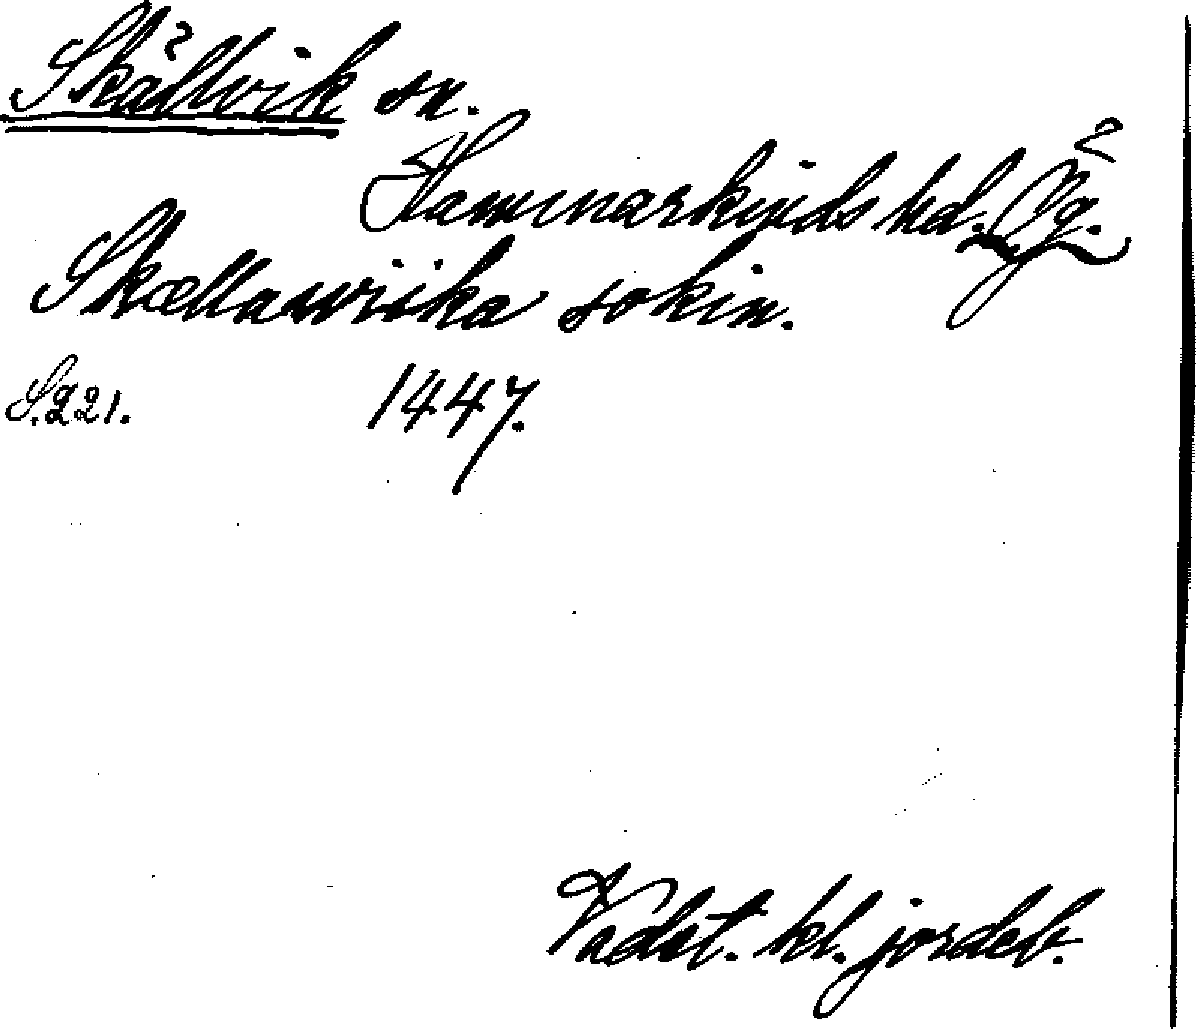 Skällvik sn.
Hammarkinds hd. Ög.
Skællawika sokin.
S. 221. 1447.
Vadst. kl. jordeb.